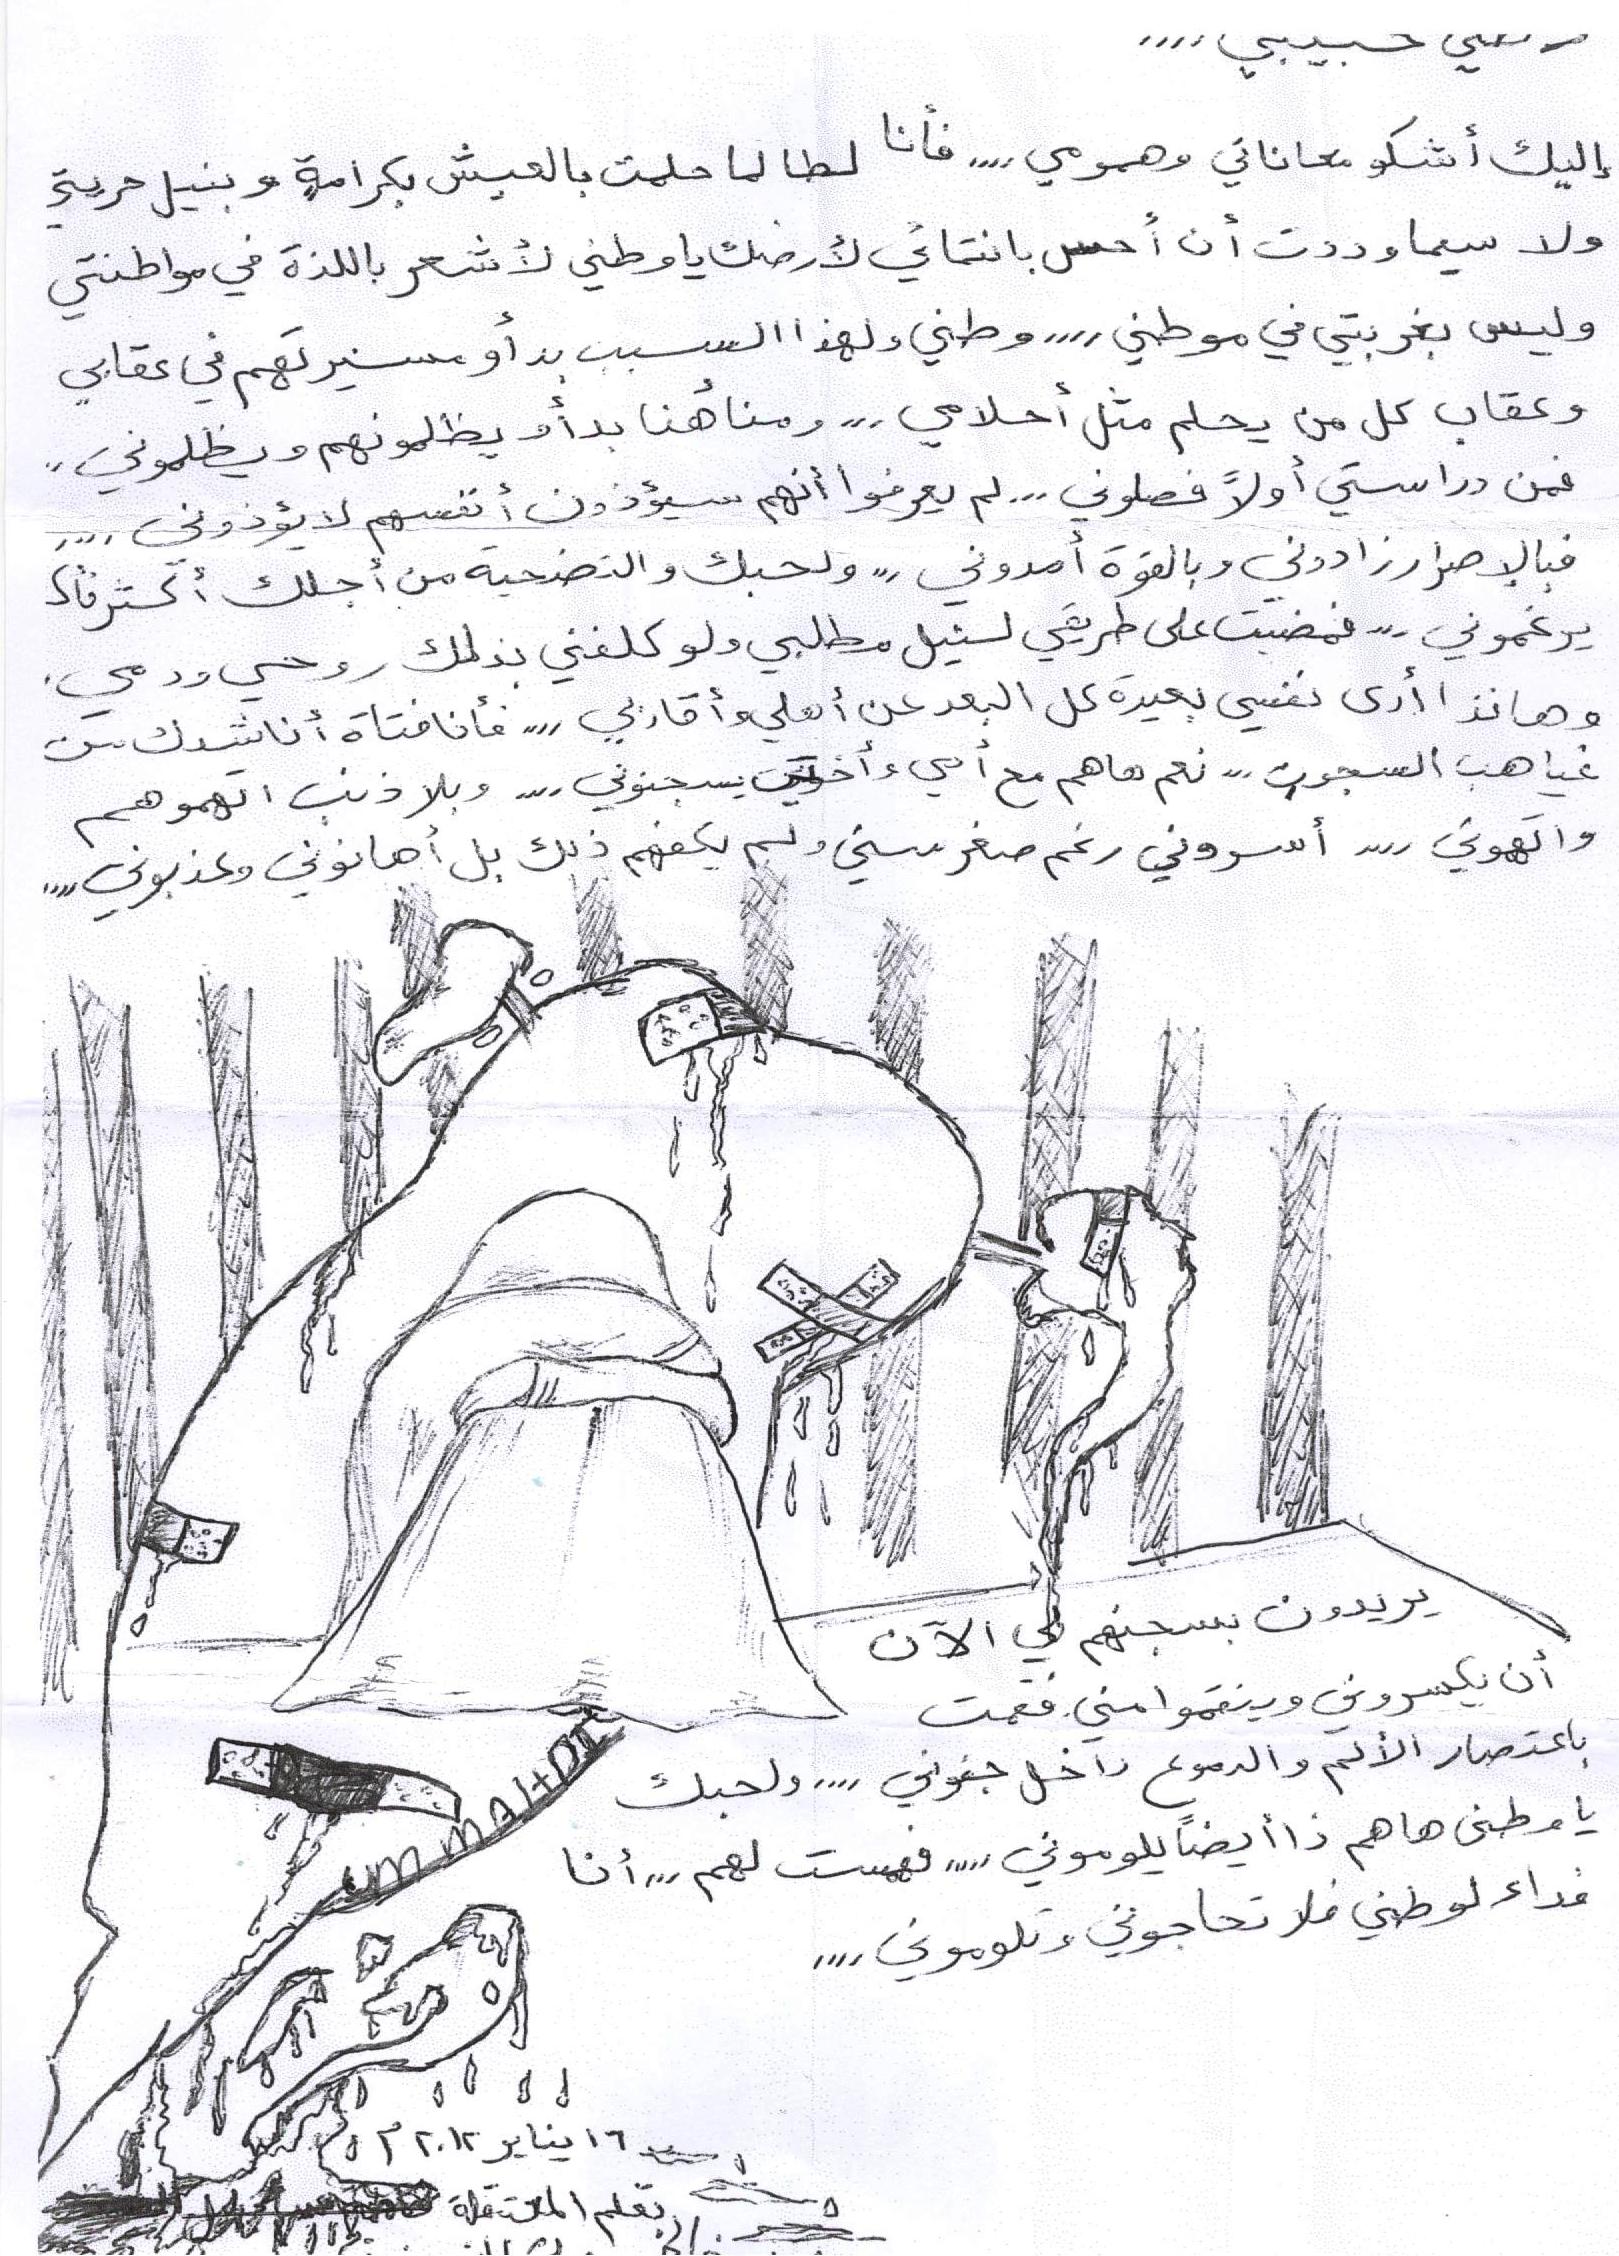 حبيبي ,,,,
إليك أشكو معاناتي وهمومي ,,,, فأنا لطالما حلمت بالعيش بكرامةٍ وبنيل حريتي
ولا سيما وددت أن أحس بانتمائي لأرضك يا وطني لأشعر باللذة في مواطنتي
وليس بغربتي في موطني ,,,, وطني ولهذا السبب بدأو مسيرتهم في عقابي
وعقاب كل من يحلم مثل أحلامي ,,, ومن هنا بدأو يظلمونهم ويظلموني ,,
فمن دراستي أولاً فصلوني ,,, لم يعرفوا أنهم سيؤذون أنفسهم لا يؤذوني ,,,,
فبالإصرار زادوني وبالقوة أمدوني ,,, ولحبك والتضحية من أجلك أكثر
يرغموني ,,, فمضيت على طريقي لنيل مطلبي ولو كلفني بذلك روحي ودمي .
وهانذا أرى نفسي بعيدة كل البعد عن أهلي وأقاربي ,,,, فأنا فتاة أناشدك من
غياهب السجون ,,, نعم هاهم مع أمي وأختي يسجنوني ,,,, وبلا ذنب اتهموهم
واتهموني ,,,, أسروني رغم صغر سني ولم يكفهم ذلك بل أهانوني وعذبوني ,,,,
يريدون بسجنهم لي الآن
أن يكسروني وينتقموا مني فقمت
باعتصار الألم والدموع داخل جفوني ,,,, ولحبك
يا وطني هاهم ذا أيضاً يلوموني ,,,, فهمست لهم ,,, أنا
فداء لوطني فلا تحاجوني وتلوموني ,,,,
١٦ يناير ٢٠١٢ م
بقلم المعتقلة